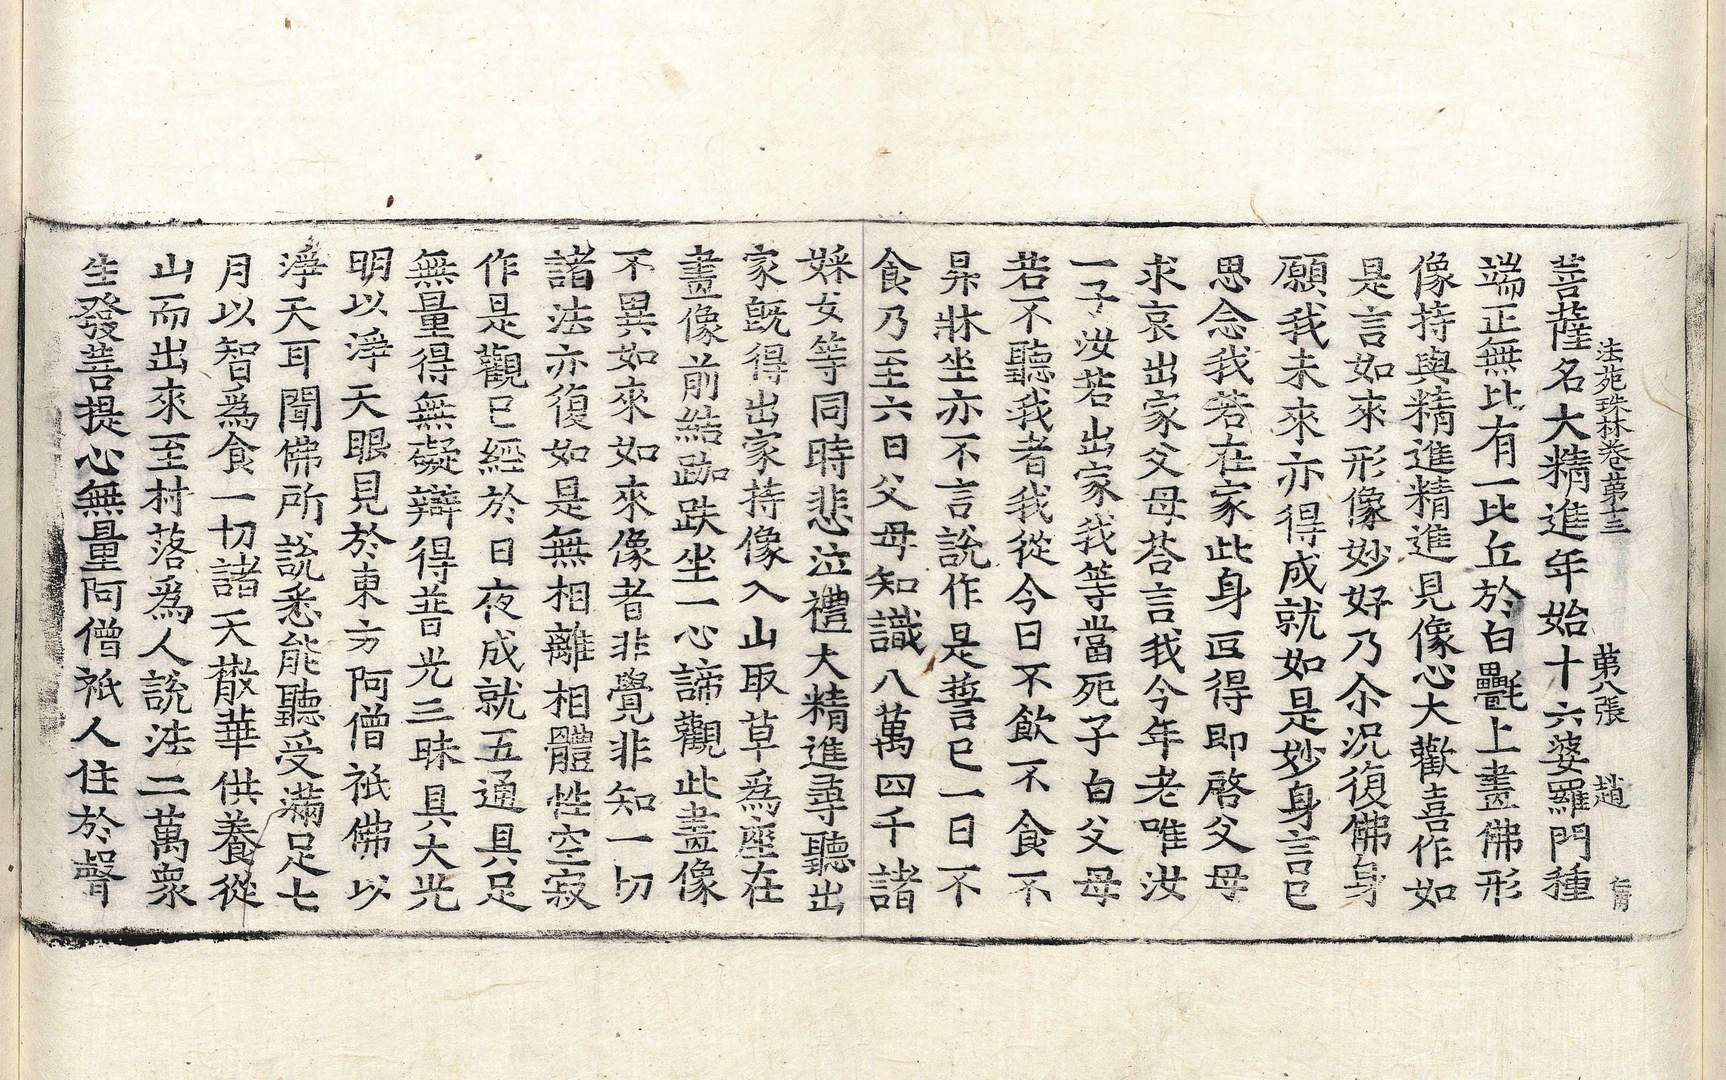 法苑珠林卷第十三 第八張 趙
菩薩名大精進年始十六婆羅門種
端正無比有一比丘於白㲲上畫佛形
像持與精進精進見像心大歡喜作如
是言如來形像妙好乃尒況復佛身
願我未來亦得成就如是妙身言已
思念我若在家此身叵得即啓父母
求哀出家父母荅言我今年老唯汝
一子汝若出家我等當死子白父母
若不聽我者我從今日不飲不食不
昇牀坐亦不言說作是誓已一日不
食乃至六日父母知識八萬四千諸
婇女等同時悲泣禮大精進尋聽出
家旣得出家持像入山取草爲座在
畫像前結跏趺坐一心諦觀此畫像
不異如來如來像者非覺非知一切
諸法亦復如是無相離相體性空寂
作是觀已經於日夜成就五通具足
無量得無礙辯得普光三昧具大光
明以淨天眼見於東方阿僧祇佛以
淨天耳聞佛所說悉能聽受滿足七
月以智爲食一切諸天散華供養從
山而出來至村落爲人說法二萬衆
生發菩提心無量阿僧祇人住於聲